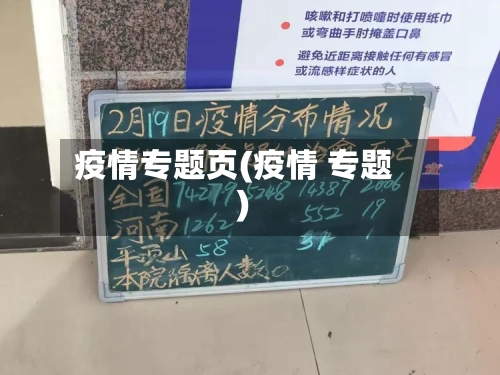 咳嗽和打喷嚏时使用纸巾
或弯曲手肘掩盖口鼻
避免近距离接触任何有感冒
或流感样症状的人
2月19日疫情分布情况
疫情专题页(疫情 专题
)
全国 74279 5248 14387 2006
河南 1262 552 19
平顶山 58 1
本院隔离人数0